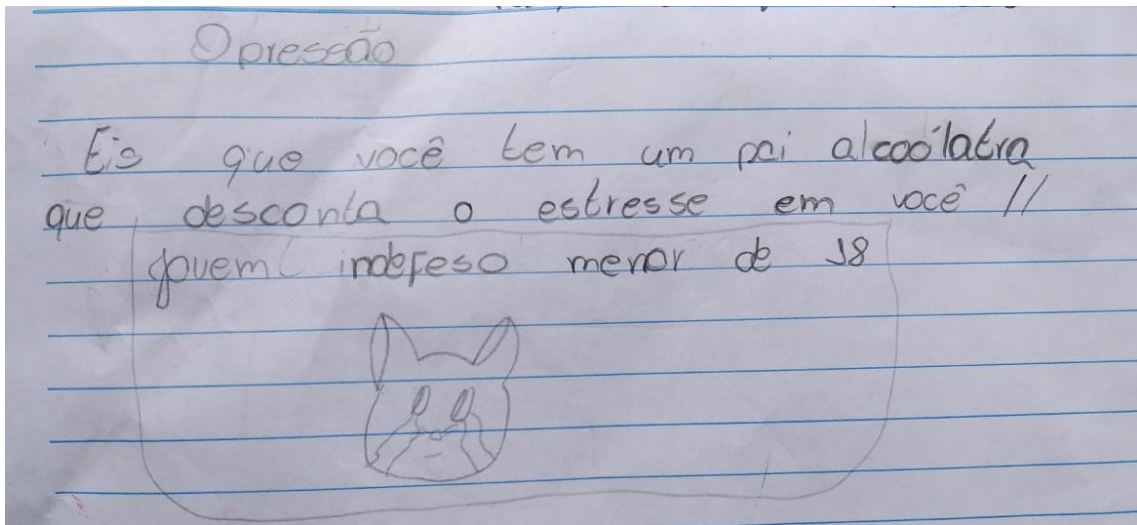 Opressão
Eis que você tem um pai alcoólatra
que desconta o estresse em você //
jovem indefeso menor de 18